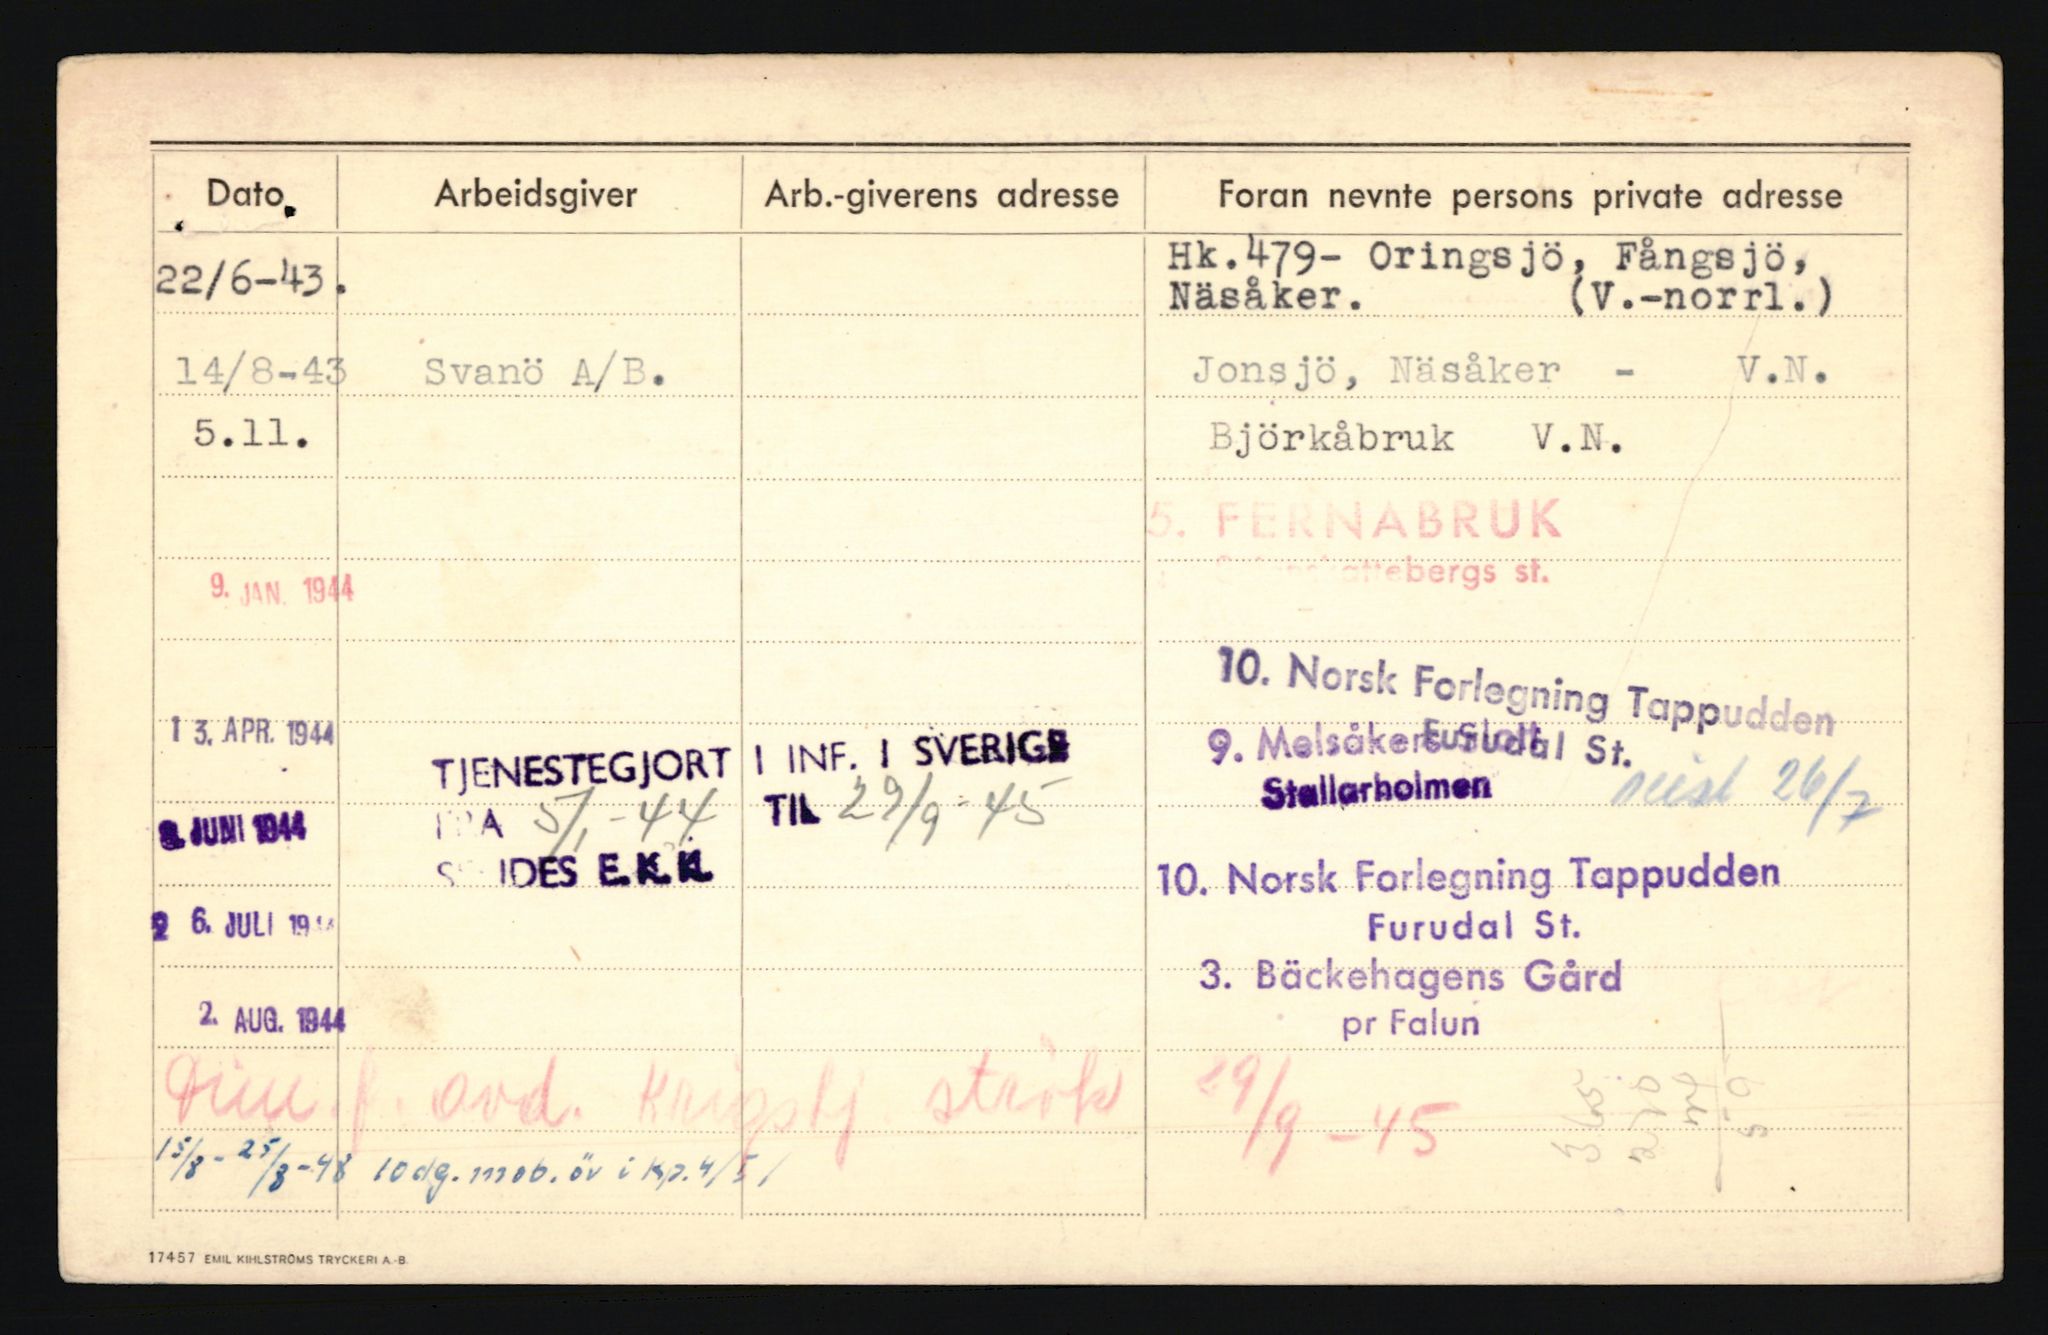 Dato. Arbeidsgiver Arb.-giverens adresse Foran nevnte persons private adresse
22/6-43. Hk.479- Oringsjö, Fångsjö,
Näsåker. (V.-norrl.)
14/8-43 Svanö A/B. Jonsjö, Näsåker - V.N.
5.11. Björkåbruk V.N.
5. FERNABRUK
9. JAN. 1944 st.
10. Norsk Forlegning Tappudden
Furudal St.
13. APR. 1944
9. Melsåkers Slott
Stallarholmen
26/7
TJENESTEGJORT I INF. I SVERIGE
FRA 5/1-44 TIL 29/9-45
E.K.K.
JUNI 1944
10. Norsk Forlegning Tappudden
Furudal St.
26. JULI 1944
3. Bäckehagens Gård
pr Falun
2. AUG. 1944
Dim. f. avd. Krigstj. strök 29/9-45
15/8-25/8-48 10 dg. mob. öv i kp. 4/51
365
270
17457 EMIL KIHLSTRÖMS TRYCKERI A.-B.